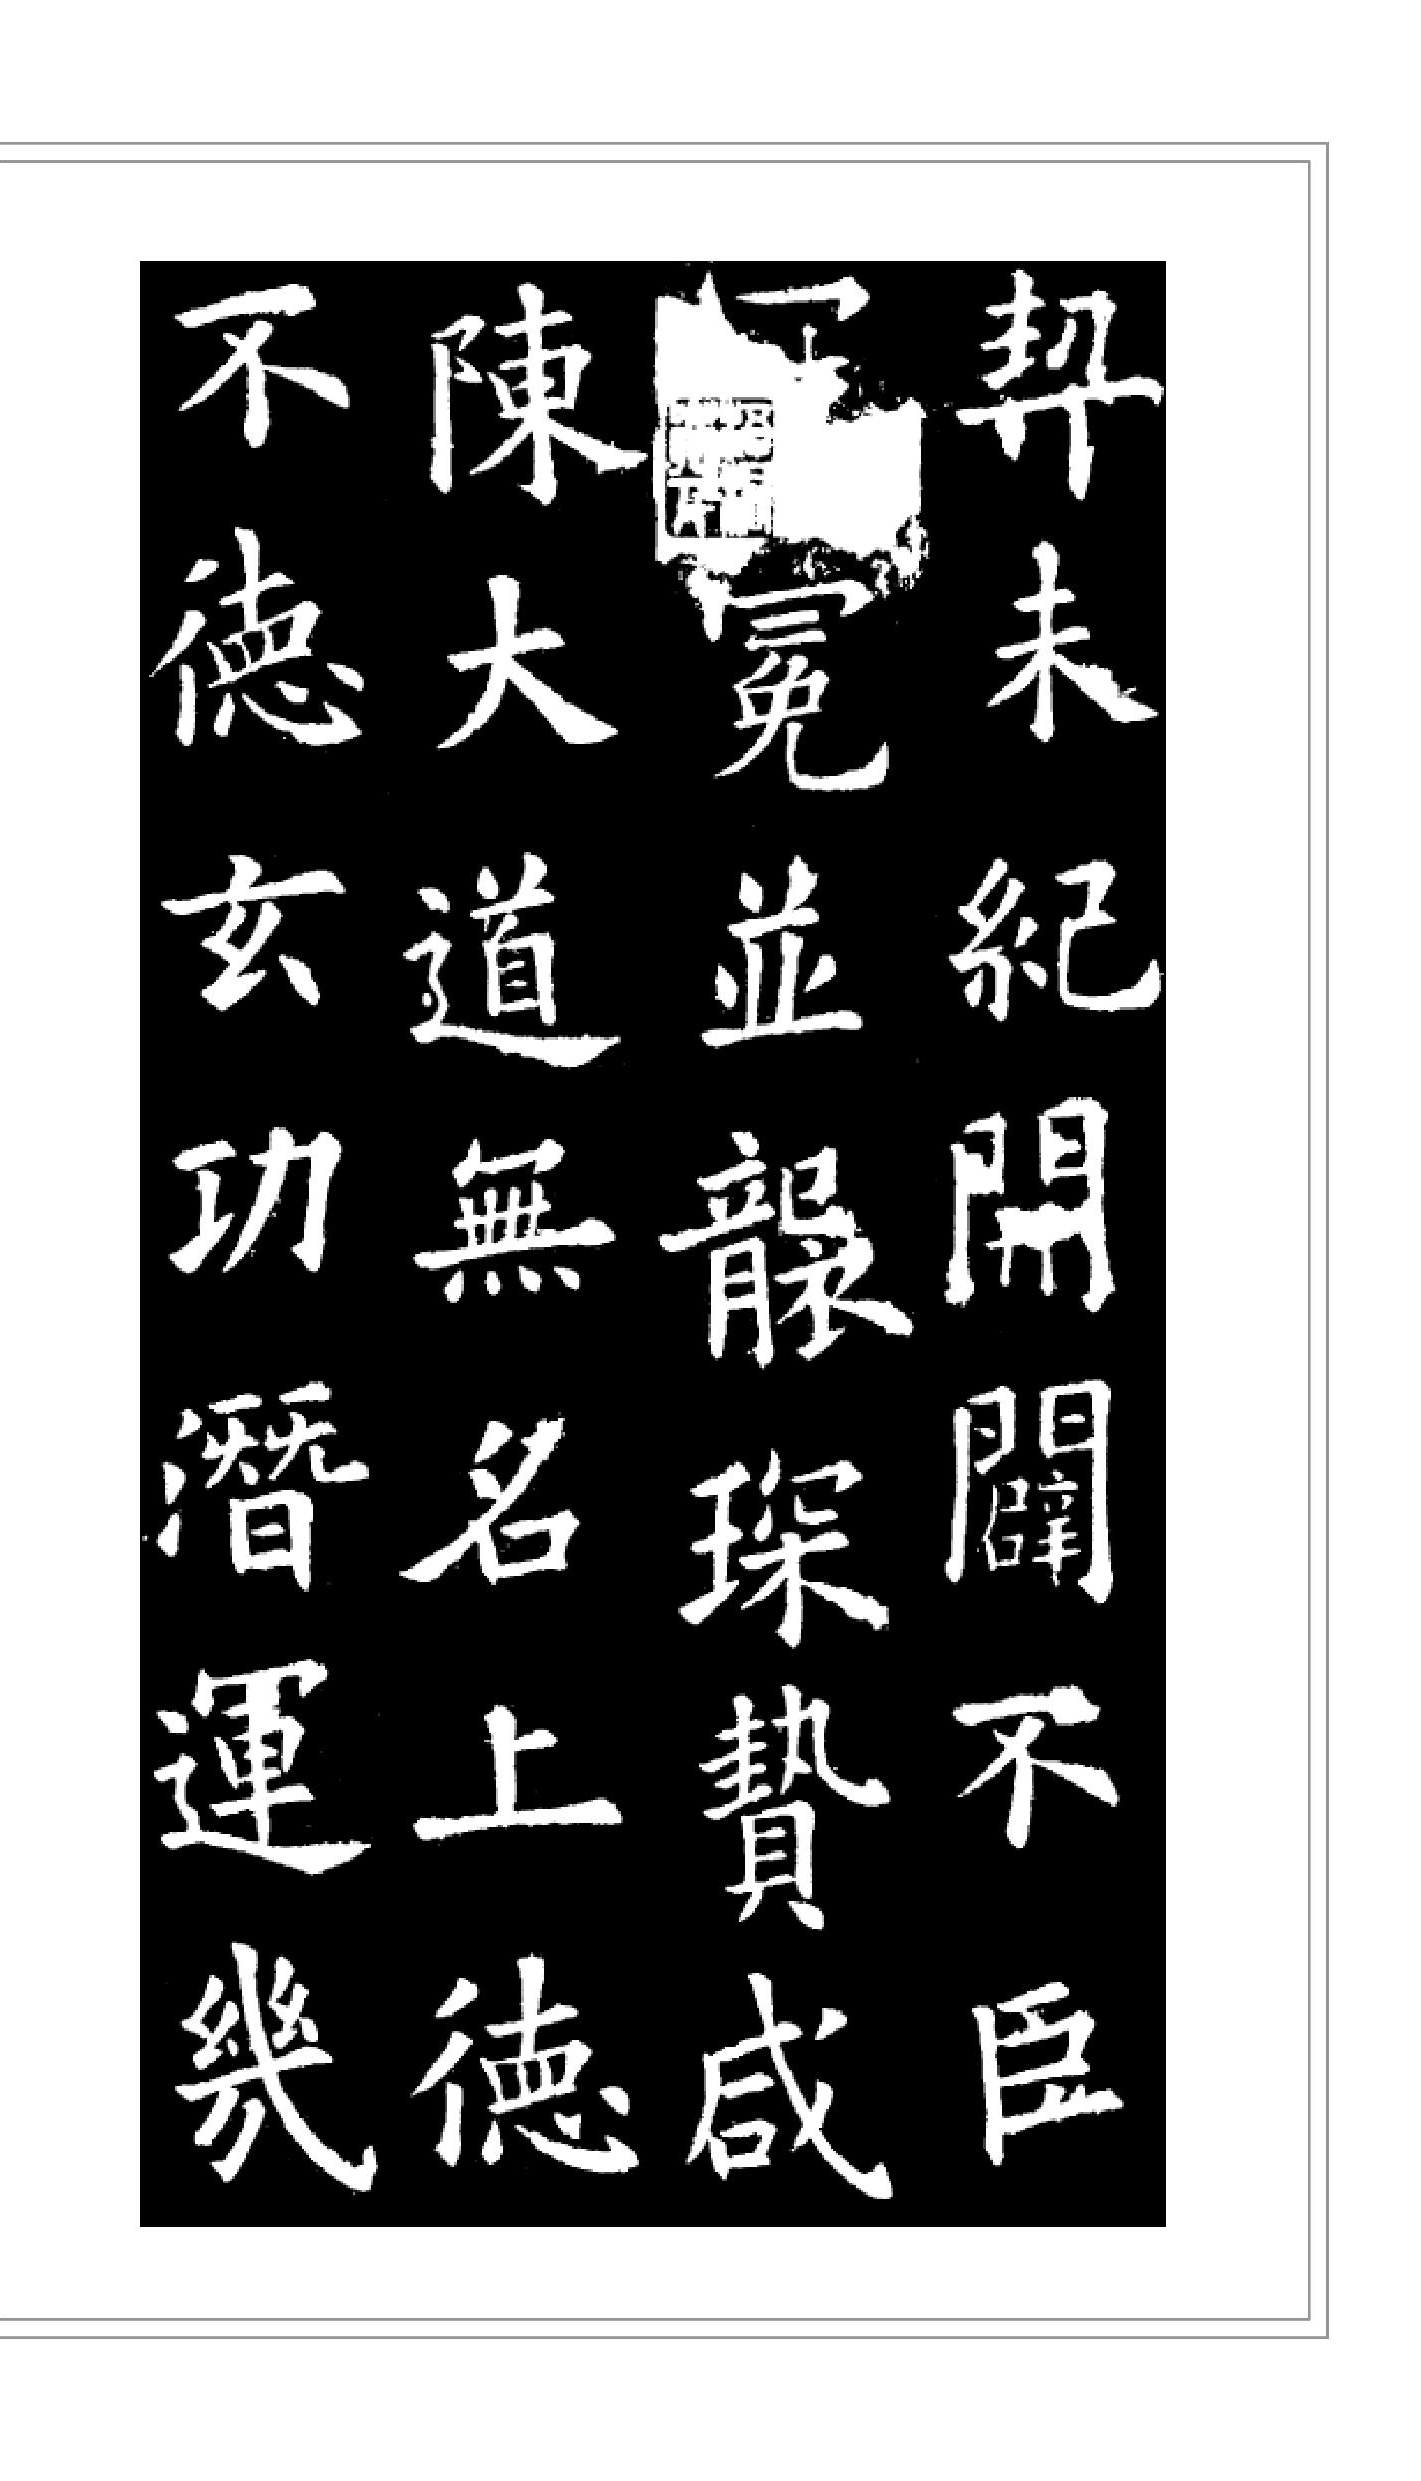 契未紀開闢不臣
冕並襲琛贄咸
陳大道無名上德
不德玄功潛運幾